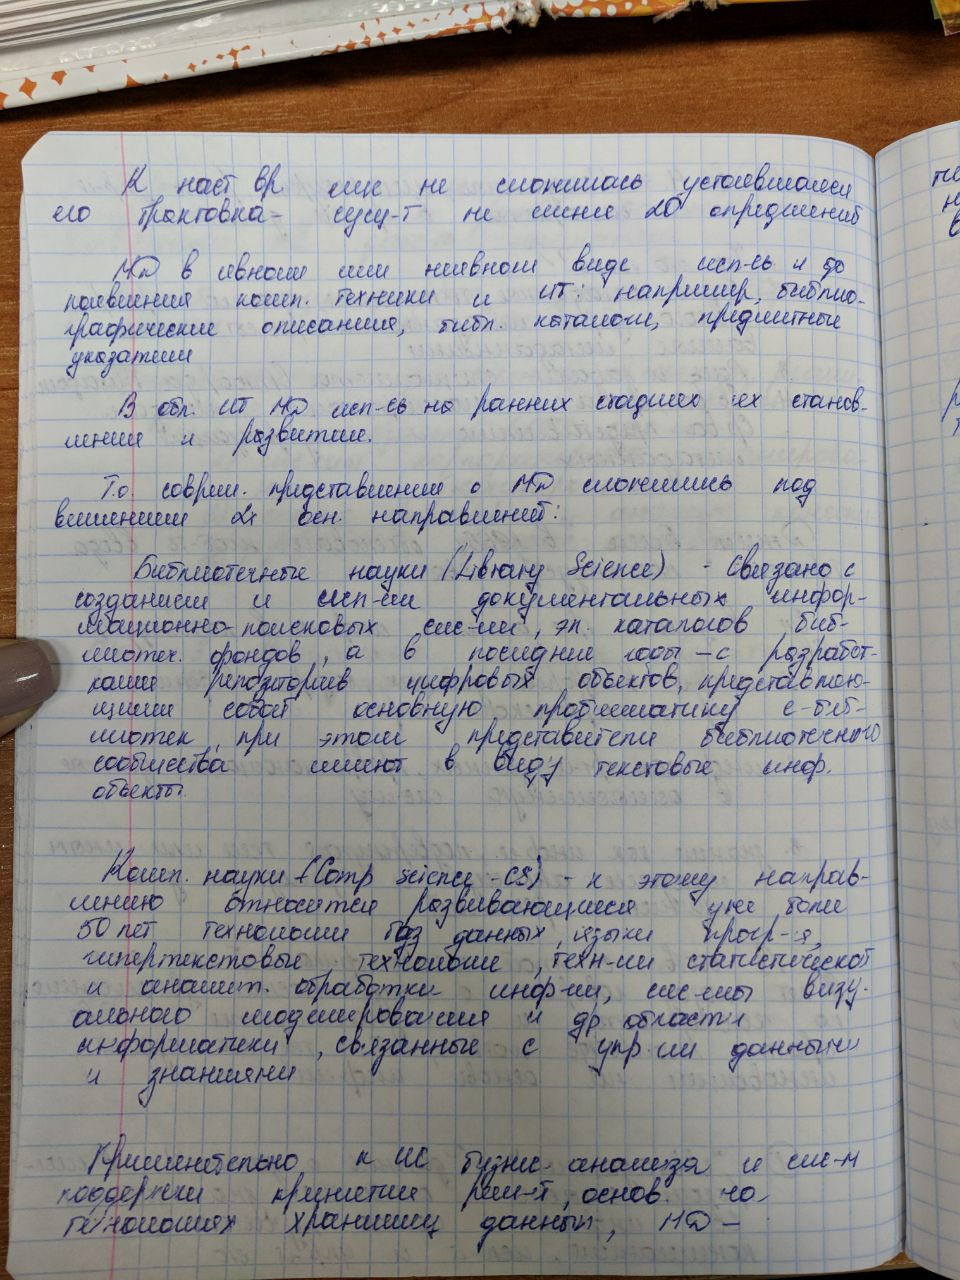 К наст вр еще не сложилась устоявшаяся
его трактовка - сущ-т не менее 20 определений
МД в явном или неявном виде исп-сь и до
появления комп. техники и ИТ: например, библио-
графические описания, библ. каталоги, предметные
указатели
В обл. ИТ МД исп-сь на ранних стадиях их станов-
ления и развития.
Т.о. соврем. представления о МД сложились под
влиянием 2х осн. направлений:
Библиотечные науки (Library Science) - связано с
созданием и исп-ем документальных инфор-
мационно-поисковых сис-м, эл. каталогов биб-
лиотеч. фондов, а в последние годы - с разработ-
ками репозиториев цифровых объектов, представляю-
щими собой основную проблематику е-биб-
лиотек, при этом представители библиотечного
сообщества имеют в виду текстовые инф.
объекты.
Комп. науки (Comp Science - CS) - к этому направ-
лению относятся развивающиеся уже более
50 лет технологии баз данных, языки прогр-я,
гипертекстовые технологии, техн-ии статистической
и аналит. обработки инф-ии, сис-мы визу-
ального моделирования и др области
информатики, связанные с упр-ии данными
и знаниями
Применительно к ИС бизнес анализа и сис-м
поддержки принятия реш-й, основ. на
технологиях хранилищ данных, МД -